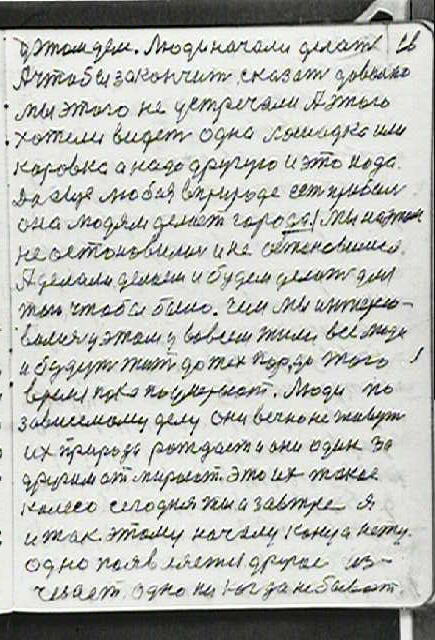 этом дем. Люди начали делать 26
А чтобы закончит, сказат довольно
мы этого не устречали А этого
хотели видет одна лошадка или
коровка а надо другую и это нада.
Да еще любая в природе ест прибыл
она людям делает города! Мы на этом
не остоновилис и не остоновимся.
А делали делаем и будем делат для
того чтобы было. Чем мы интересо-
валис у этом у вовсем жили все люди
и будут жит до тех пор, до того
время пока поумерают. Люди по
зависемому делу они вечно не живут
их природа рождает и они один за
другим отмирают. Это их такое
колесо сегодня ты а завтре я
и так этому началу конца нету.
одно появляется другое из-
чезает. одно никогда не бывает.